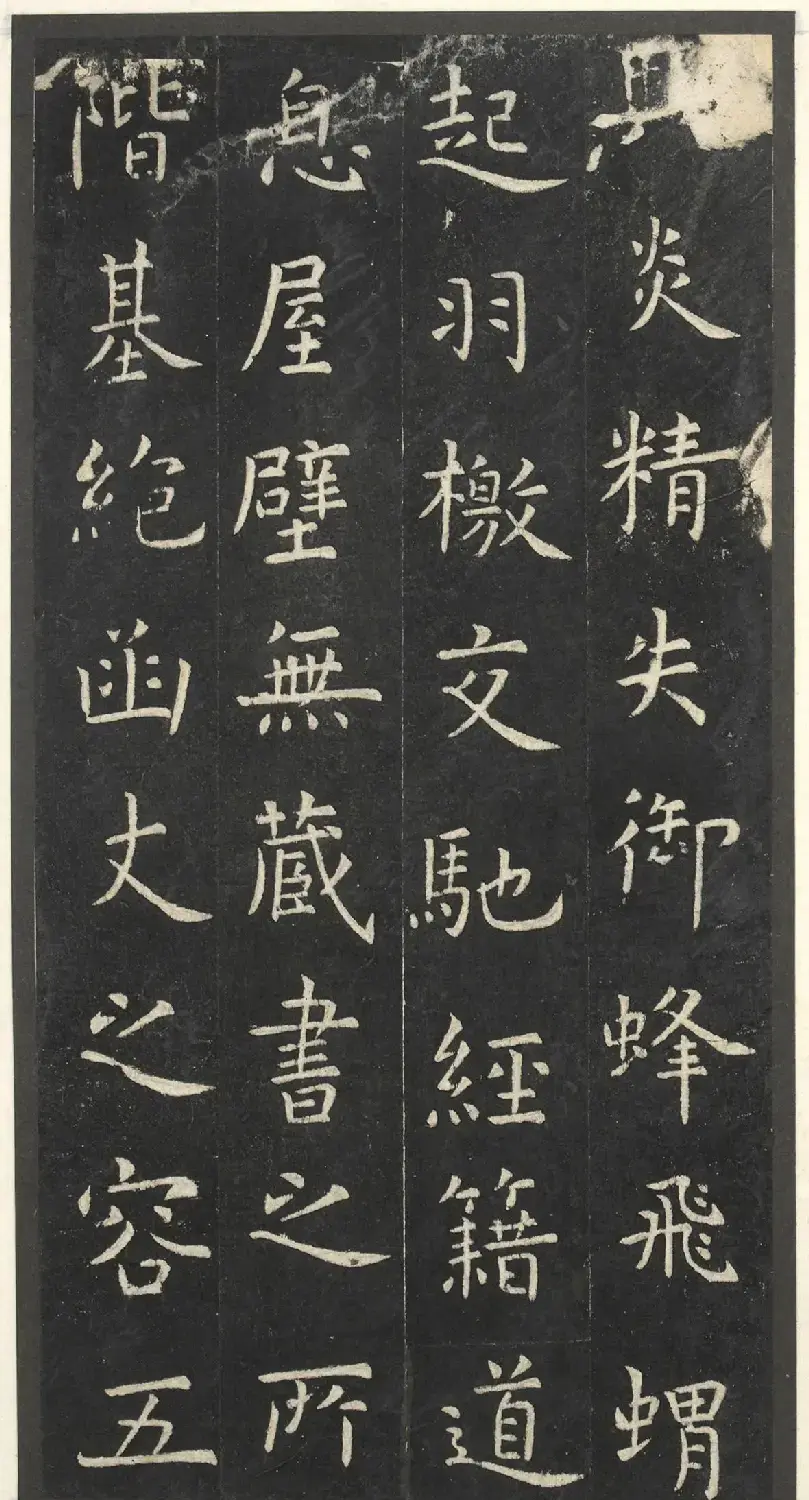 炎精失御蜂飛蝟
起羽檄交馳經籍道
息屋壁無藏書之所
階基絶函丈之容五